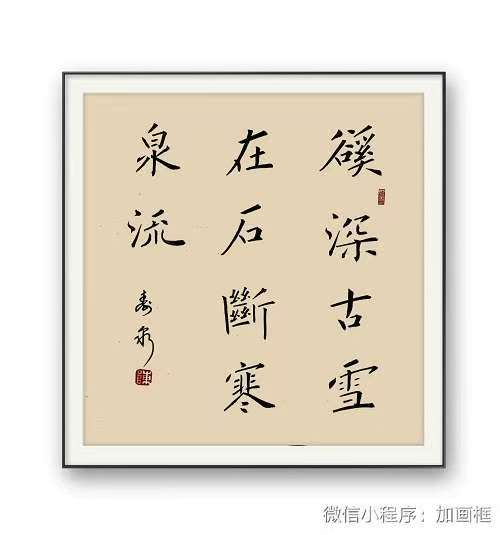 谿深古雪
在石斷寒
泉流
微信小程序：加画框